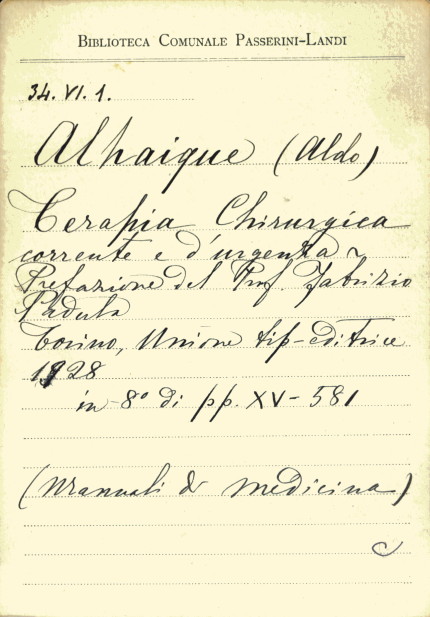 BIBLIOTECA COMUNALE PASSERINI-LANDI
34. VI. 1.
Alhaique (Aldo)
Terapia Chirurgica
corrente e d'urgenza ~
Prefazione del Prof. Fabrizio
Padula
Torino, Unione tip-editrice
1928
in 8° di pp. XV - 581
(Manuali di medicina)